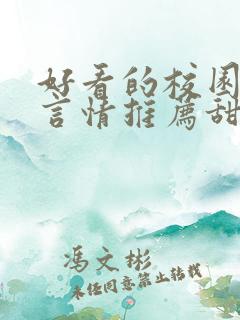 好看的校园
言情推荐甜
冯文彬
未经同意禁止转载